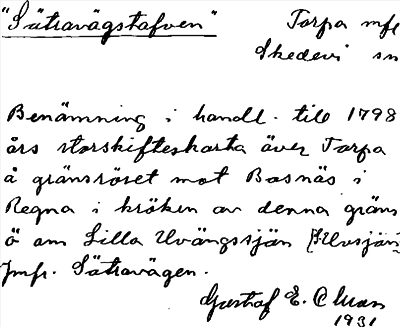 "Sätravägstafven"
Torpa mfl
Skedevi sn
Benämning i handl. till 1798
års storskifteskarta över Torpa
å gränsröset mot Bosnäs i
Regna i kröken av denna gräns
ö om Lilla Älvängssjön
Jmfr. Sätravägen.
Gustaf E.
1931